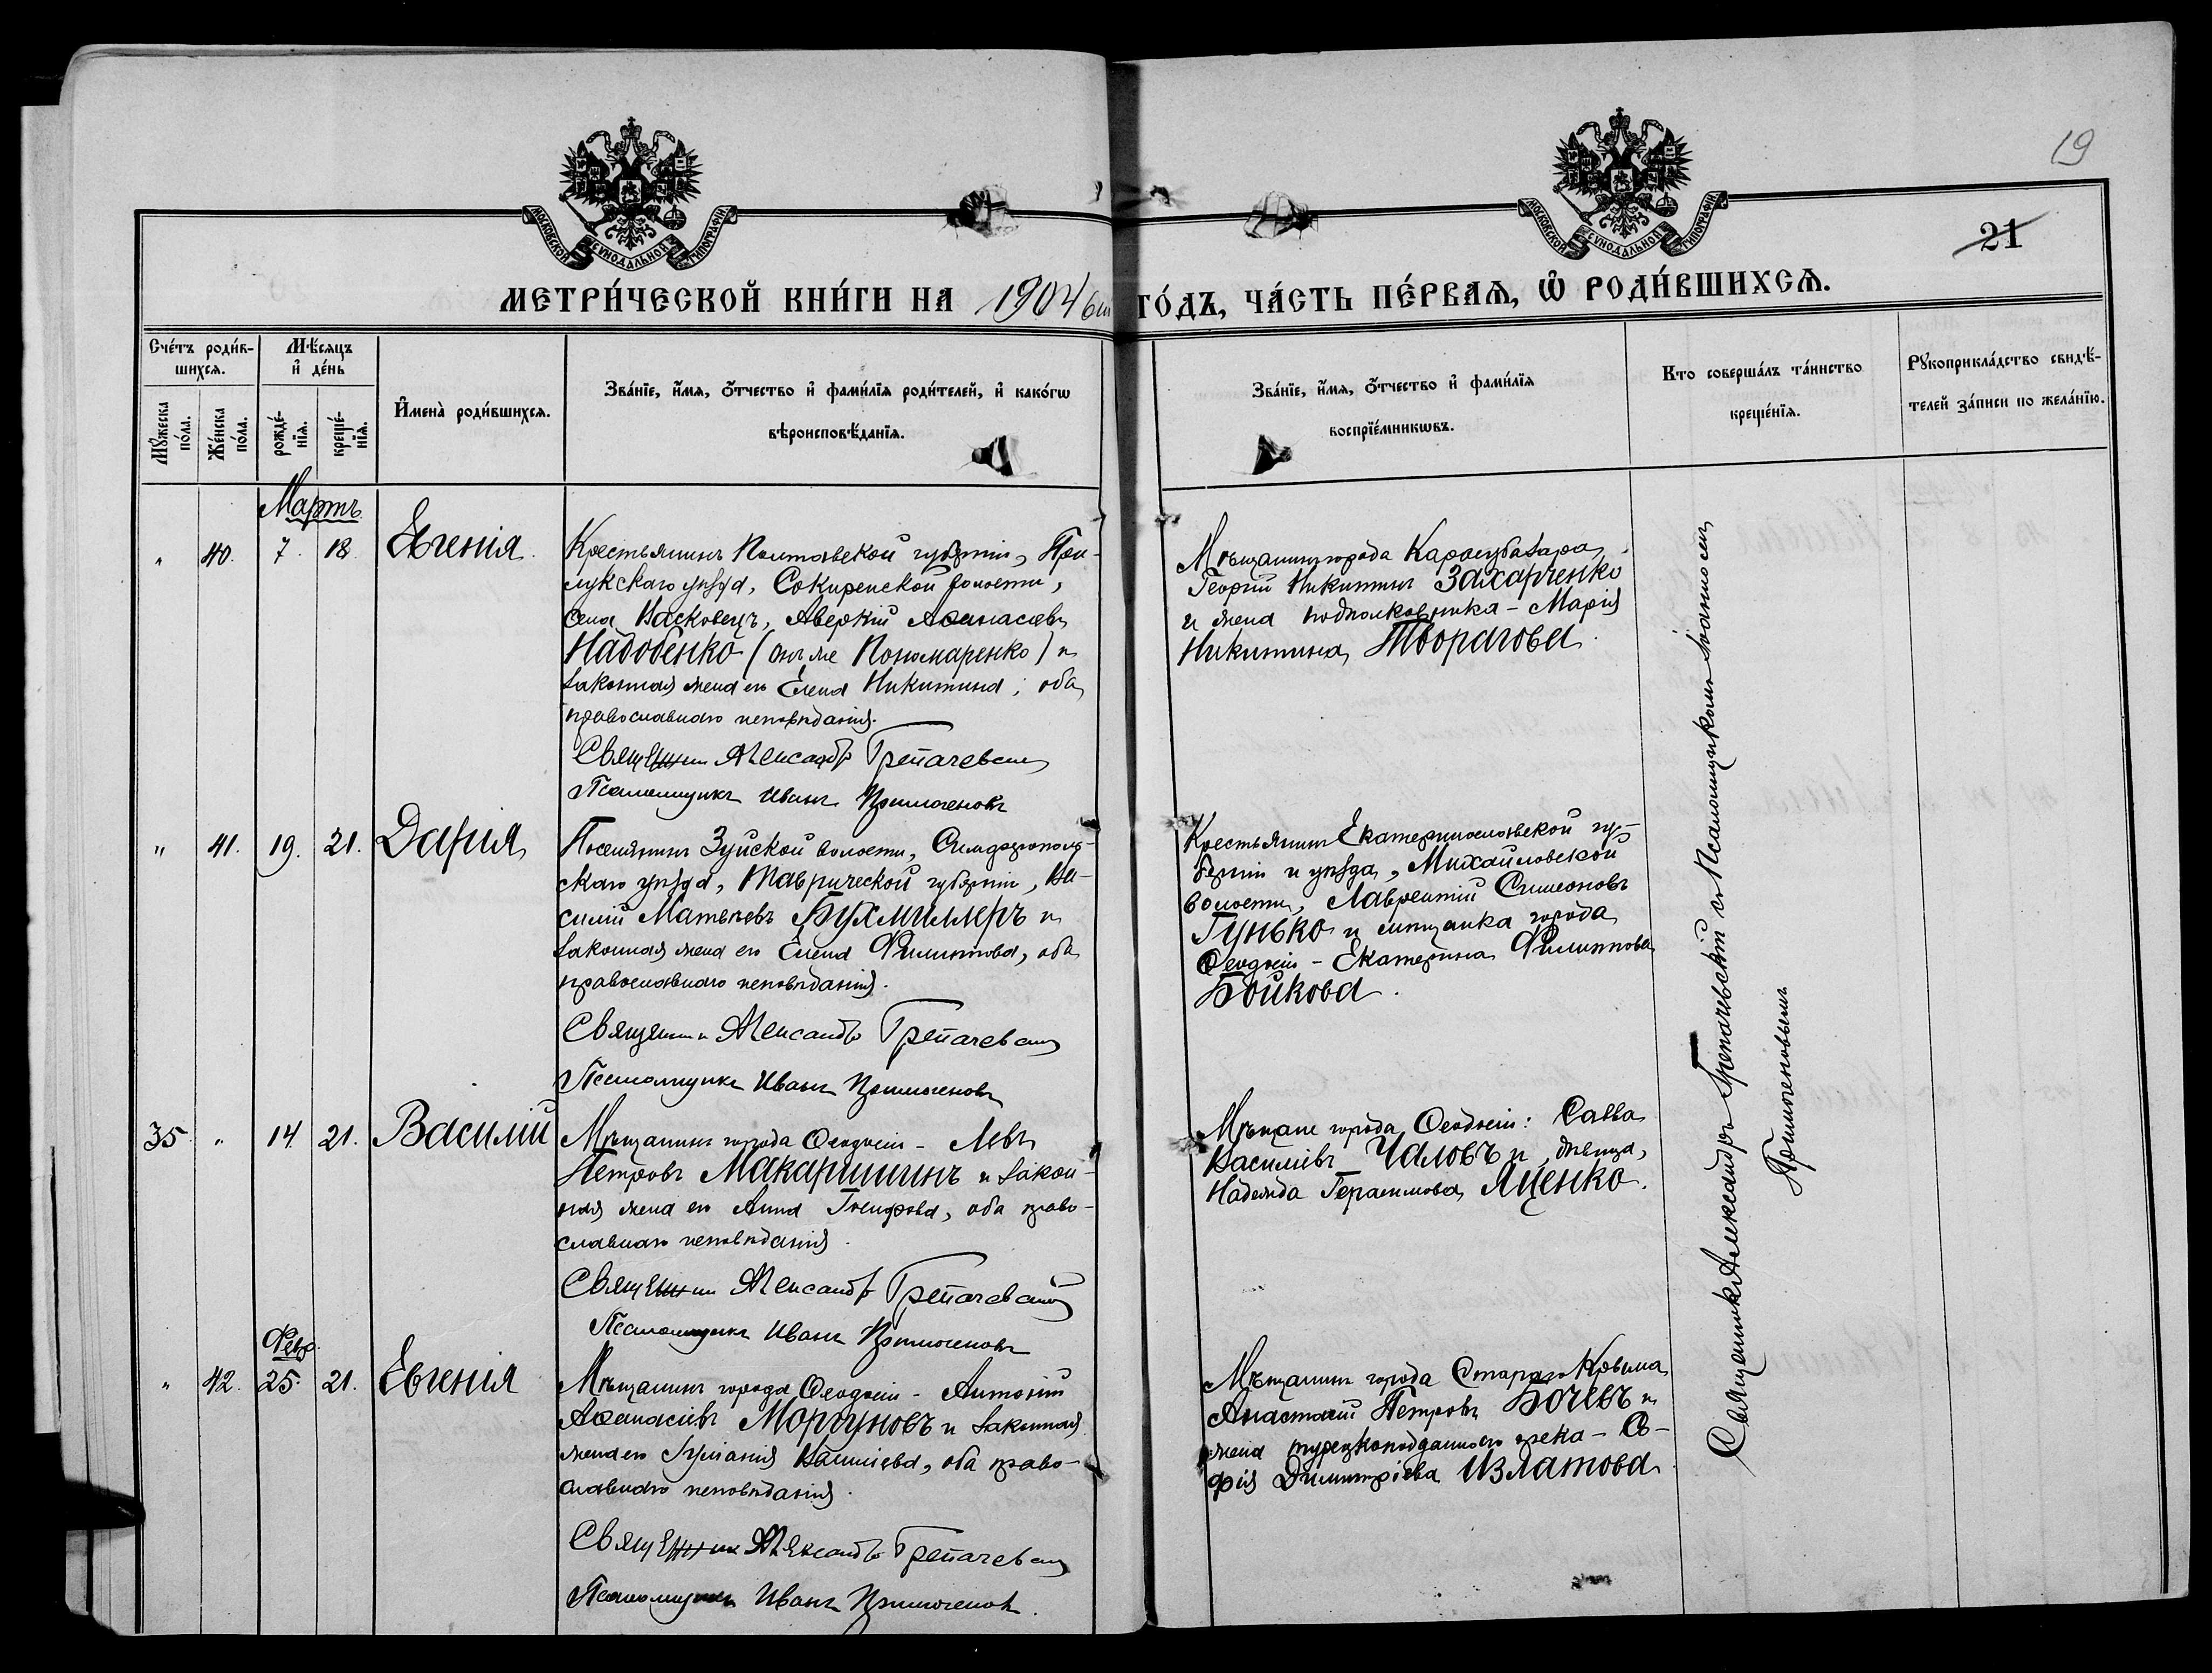 19
21
МОСКОВСКОЙ СѴНОДАЛЬНОЙ ТИПОГРАФІИ
МОСКОВСКОЙ СѴНОДАЛЬНОЙ ТИПОГРАФІИ
МЕТРИ́ЧЕСКОЙ КНИ́ГИ НА 1904 ГО́ДЪ, ЧА́СТЬ ПЕ́РВАѦ, Ѡ РОДИ́ВШИХСѦ.
Сче́тъ роди́в-
шихсѧ.
Мꙋ́жеска по́ла.
Же́нска по́ла.
Мѣ́сяцъ
и҆ де́нь
рожде́-
нїѧ.
креще́-
нїѧ.
И҆мена̀ роди́вшихсѧ.
Зва́нїе, и҆́мѧ, ѻ҆́тчество и҆ фамилїѧ роди́телей, и҆ како́гѡ
вѣроисповѣ́данїѧ.
Зва́нїе, и҆́мѧ, ѻ҆́тчество и҆ фами́лїѧ
воспрїе́мникѡвъ.
Кто соверша́лъ та́инство
креще́нїѧ.
Рꙋкоприкла́дство свидѣ́-
телей за́писи по жела́нїю.
Мартъ
" 40. 7. 18. Евгенія
Крестьянинъ Полтавской губерніи, При-
лукскаго уѣзда, Сокиренской волости,
села Васковецъ, Аверкій Аѳанасіевъ
Надобенко (онъ же Пономаренко) и
законная жена его Елена Никитина; оба
православнаго исповѣданія.
Священникъ Александръ Трепачевскій
Псаломщикъ Иванъ Примоченовъ
Мѣщанинъ города Карасубазара
Георгій Никитинъ Захарченко
и жена подполковника - Марія
Никитина
" 41. 19. 21. Дарія
Поселянинъ Зуйской волости, Симферополь-
скаго уѣзда, Таврической губерніи, Ва-
силій Матвѣевъ Бухмиллеръ и
законная жена его Елена Филиппова, оба
православнаго исповѣданія.
Священникъ Александръ Трепачевскій
Псаломщикъ Иванъ Примоченовъ
Крестьянинъ Екатеринославской гу-
берніи и уѣзда, Михайловской
волости, Лаврентій Симеоновъ
Гунько и мѣщанка города
Ѳеодосіи - Екатерина Филиппова
Бойкова.
35 " 14. 21. Василій
Мѣщанинъ города Ѳеодосіи - Левъ
Петровъ Макаришинъ и закон-
ная жена его Анна Онуфрова, оба право-
славнаго исповѣданія.
Священникъ Александръ Трепачевскій
Псаломщикъ Иванъ Примоченовъ
Мѣщане города Ѳеодосіи: Савва
Васильевъ Чаловъ и дѣвица,
Надежда Герасимова Яценко.
Февр.
" 42. 25. 21. Евгенія
Мѣщанинъ города Ѳеодосіи - Антоній
Аѳанасіевъ Моргуновъ и законная
жена его Іуліанія Васильева, оба право-
славнаго исповѣданія.
Священникъ Александръ Трепачевскій
Псаломщикъ Иванъ Примоченовъ.
Мѣщанинъ города Стараго Крыма
Анастасій Петровъ Бочевъ и
жена турецкоподданнаго грека - Со-
фія Димитріева Излатова.
Священникъ Александръ Трепачевскій съ Псаломщикомъ Іоанномъ
Примоченовымъ